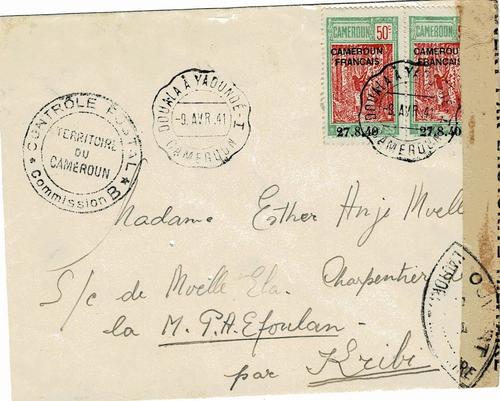 CAMEROUN 50c CAMEROUN
CAMEROUN FRANÇAIS CAMEROUN FRANÇAIS
27.8.40 27.8.40
DOUALA À YAOUNDÉ-1
-9 AVR.41
CAMEROUN
DOUALA À YAOUNDÉ-1
-9 AVR.41
CAMEROUN
CONTRÔLE POSTAL
TERRITOIRE
DU
CAMEROUN
* Commission B *
Madame Esther Anje Mvelle
S/c de Mvelle Ela. Charpentier à
la M.P.A. Efoulan-
par Kribi